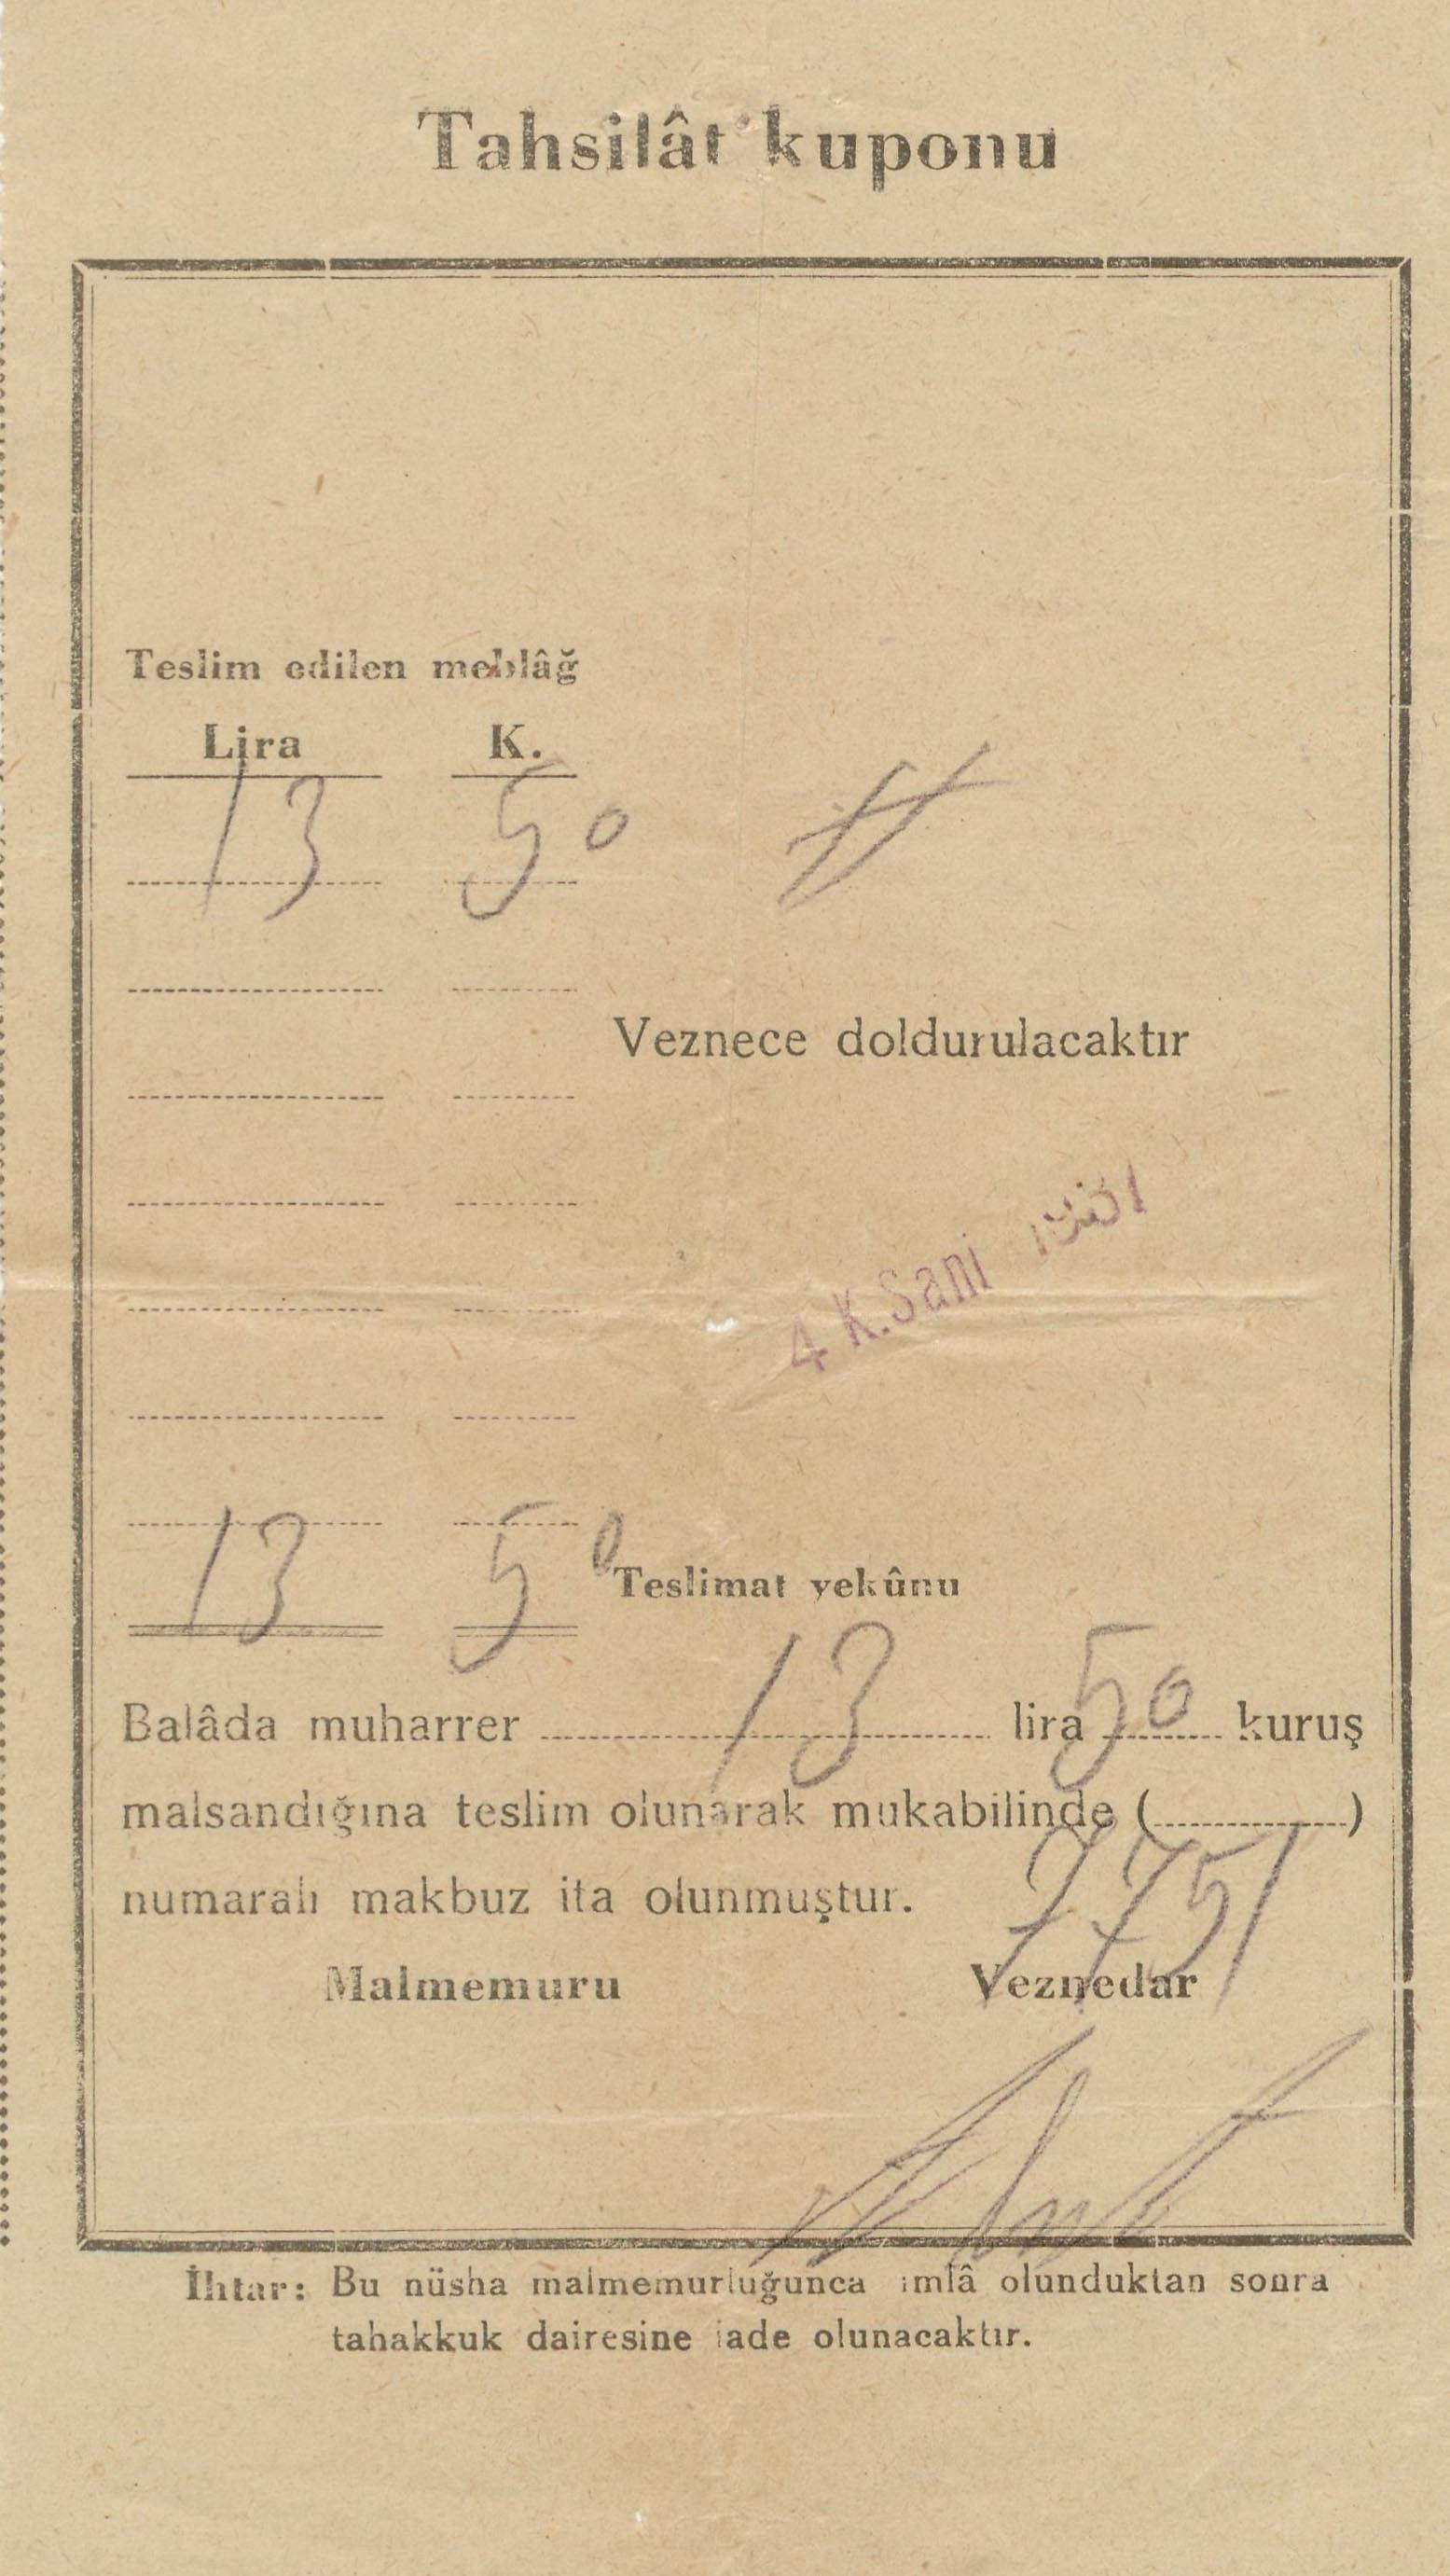 Tahsilât kuponu
Teslim edilen meblâğ
Lira K.
13 50
Veznece doldurulacaktır
4 K.Sani 1931
13 50 Teslimat yekûnu
Balâda muharrer 13 lira 50 kuruş
malsandığına teslim olunarak mukabilinde ( )
7751
numaralı makbuz ita olunmuştur.
Malmemuru Veznedar
İhtar: Bu nüsha malmemurluğunca imlâ olunduktan sonra
tahakkuk dairesine iade olunacaktır.